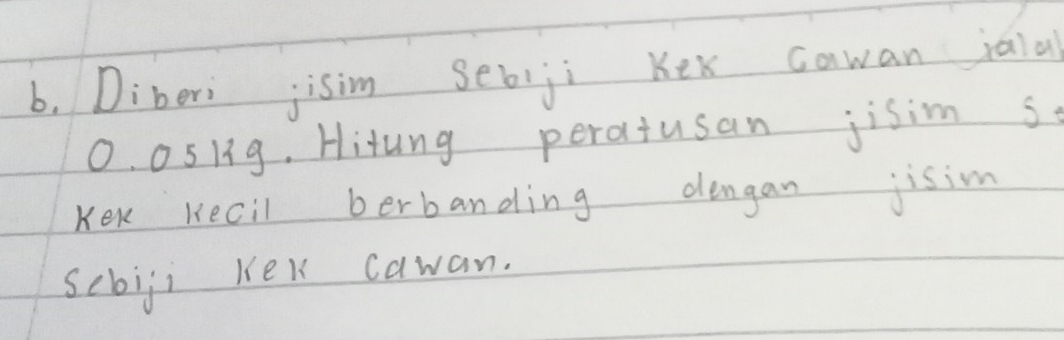 b. Diberi jisim sebiji kek cawan ialah
0.05kg. Hitung peratusan jisim
kek kecil berbanding dengan jisim
sebiji kek cawan.